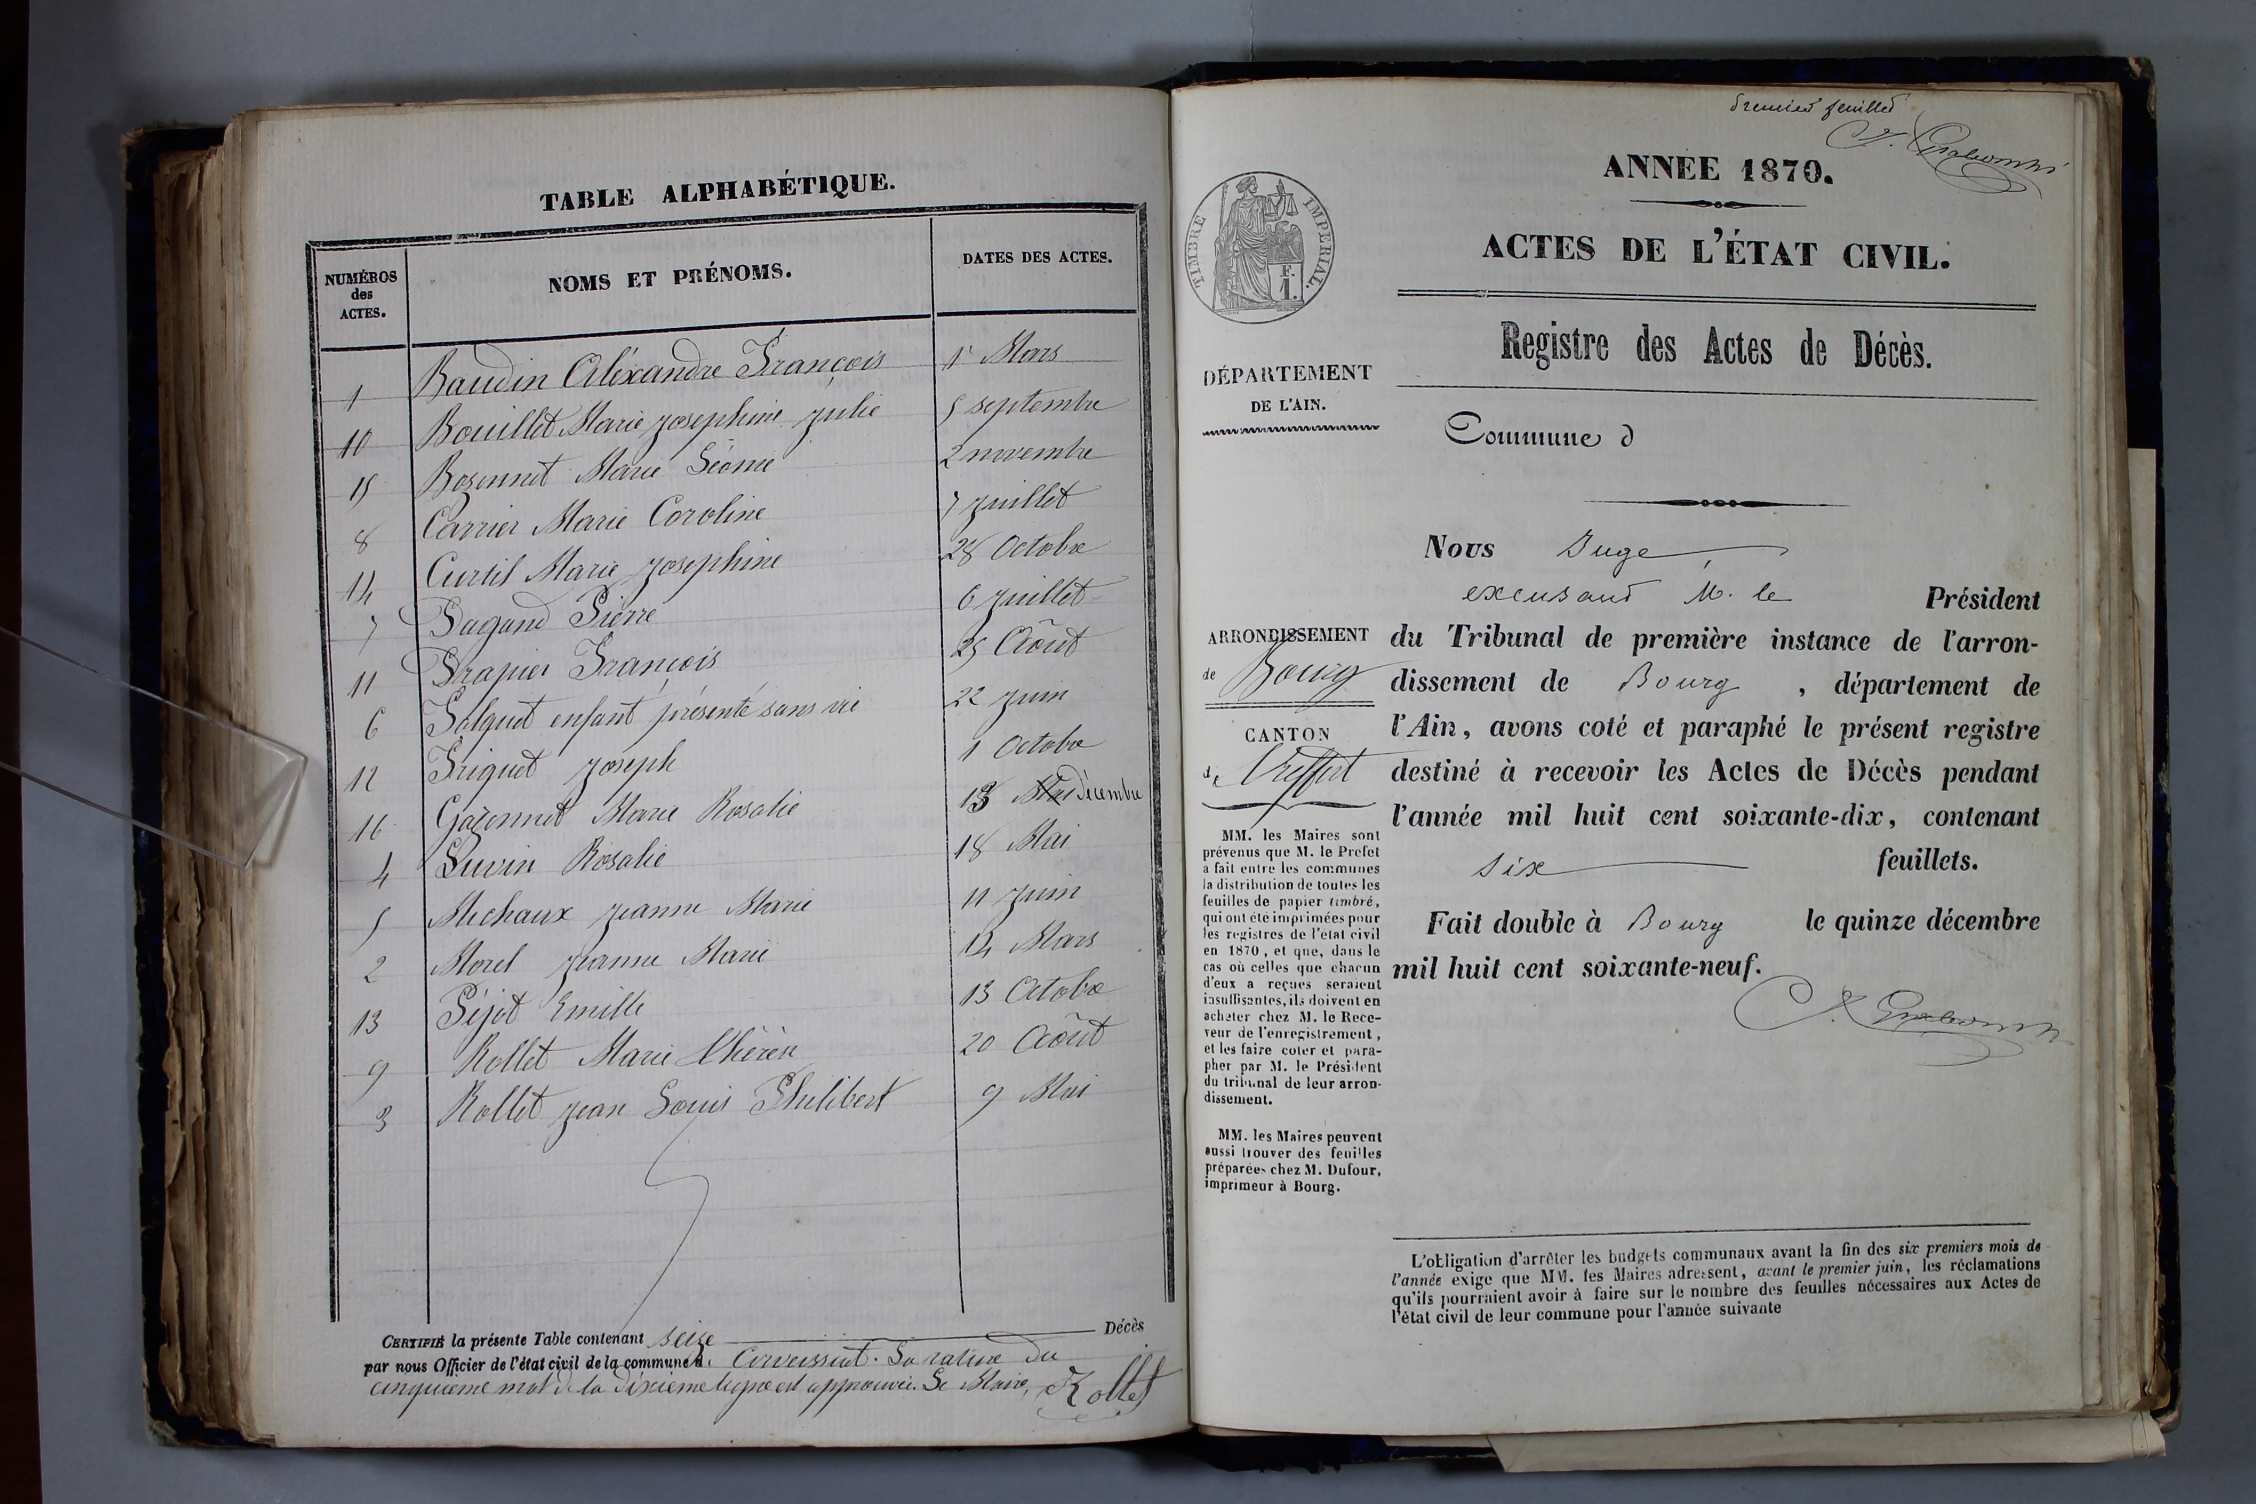 TABLE ALPHABÉTIQUE.
NUMÉROS des ACTES. NOMS ET PRÉNOMS. DATES DES ACTES.
1 Baudin Aléxandre François 1r Mars
10 Bouillet Marie josephine julie 5 septembre
15 Bozonnet Marie Léonie 2 novembre
8 Carrier Marie Coroline 7 juillet
14 Curtil Marie josephine 28 Octobre
7 Dagand Pierre 6 juillet
11 Drapier François 25 Aôut
6 Falquet enfant présenté sans vie 22 juin
12 Friquet joseph 1 Octobre
16 Gozonnet Marie Rosalie 13 décembre
4 Luvin Rosalie 18 Mai
5 Michaux jeanne Marie 11 juin
2 Morel jeanne Marie 14 Mars
13 Péjot Emille 13 Octobre
9 Rollet Marie Thérèse 20 Aôut
3 Rollet jean Louis Philibert 9 Mai
CERTIFIÉ la présente Table contenant seize Décès
par nous Officier de l'état civil de la commune d. Corveissiat. La rature du
cinquième mot de la dixième ligne est approuvée. Le Maire, Rollet
Premier feuillet
ANNÉE 1870.
ACTES DE L'ÉTAT CIVIL.
TIMBRE IMPERIAL.
F.
1.
Registre des Actes de Décès.
DÉPARTEMENT
DE L'AIN.
Commune d
Nous Juge
excusant M. le Président
ARRONDISSEMENT
de Bourg
CANTON
de Treffort
du Tribunal de première instance de l'arron-
dissement de Bourg, département de
l'Ain, avons coté et paraphé le présent registre
destiné à recevoir les Actes de Décès pendant
l'année mil huit cent soixante-dix, contenant
six feuillets.
Fait double à Bourg le quinze décembre
mil huit cent soixante-neuf.
MM. les Maires sont
prévenus que M. le Prefet
a fait entre les communes
la distribution de toutes les
feuilles de papier timbré,
qui ont été imprimées pour
les registres de l'état civil
en 1870, et que, dans le
cas où celles que chacun
d'eux a reçues seraient
insuffisantes, ils doivent en
acheter chez M. le Rece-
veur de l'enregistrement,
et les faire coter et para-
pher par M. le Président
du tribunal de leur arron-
dissement.
MM. les Maires peuvent
aussi trouver des feuilles
préparées chez M. Dufour,
imprimeur à Bourg.
L'obligation d'arrêter les budgets communaux avant la fin des six premiers mois de
l'année exige que MM. les Maires adressent, avant le premier juin, les réclamations
qu'ils pourraient avoir à faire sur le nombre des feuilles nécessaires aux Actes de
l'état civil de leur commune pour l'année suivante